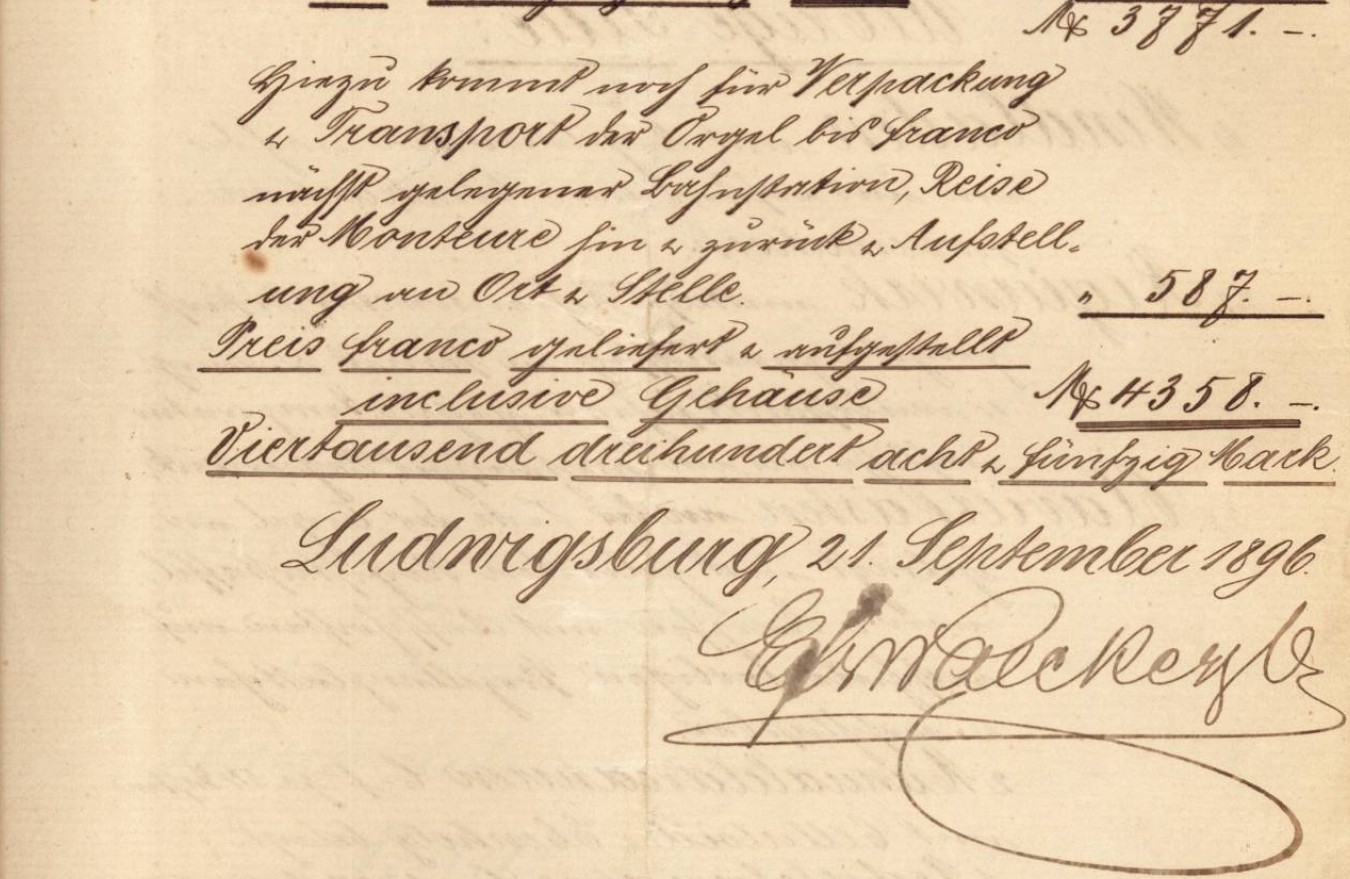 M 3771. –.
Hiezu kommt noch für Verpackung
& Transport der Orgel bis franco
nächst gelegener Bahnstation, Reise
der Monteure hin & zurück & Aufstell-
ung an Ort & Stelle. " 587. –.
Preis franco geliefert & aufgestellt
inclusive Gehäuse M 4358. –.
Viertausend dreihundert acht & fünfzig Mark.
Ludwigsburg, 21. September 1896.
EFWalcker & Cie